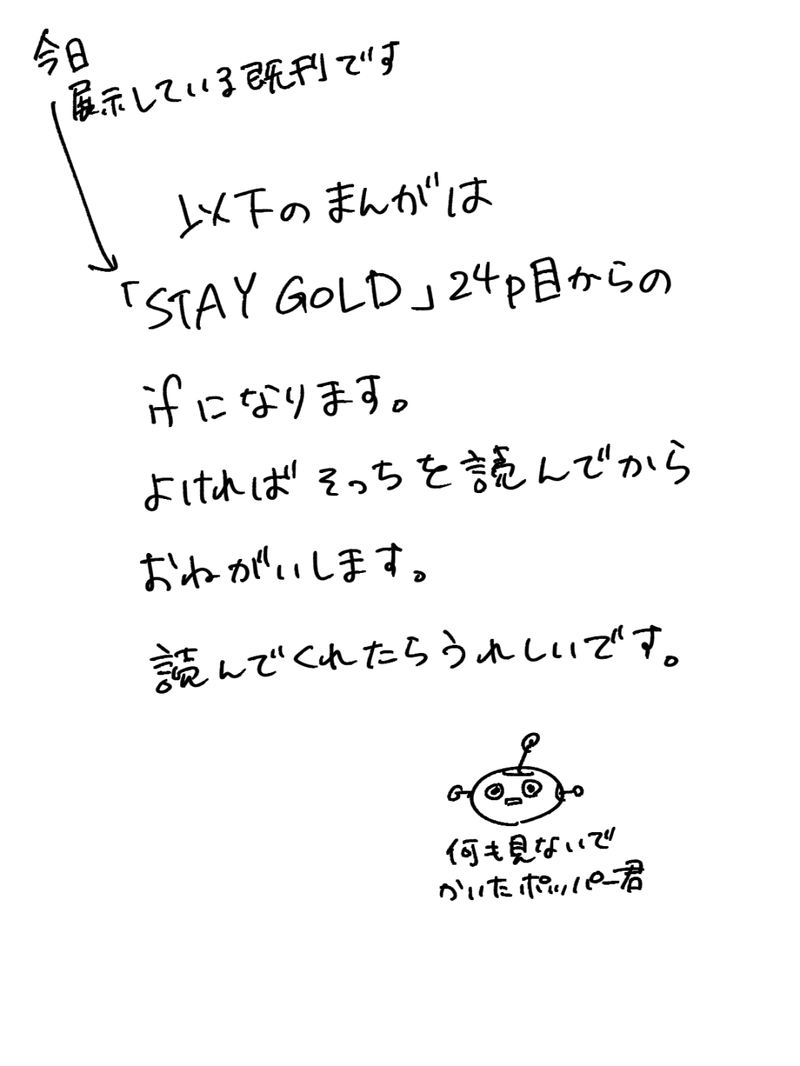 今日
展示している既刊です
以下のまんがは
「STAY GOLD」24p目からの
ifになります。
よければそっちを読んでから
おねがいします。
読んでくれたらうれしいです。
何も見ないで
かいたポッパー君